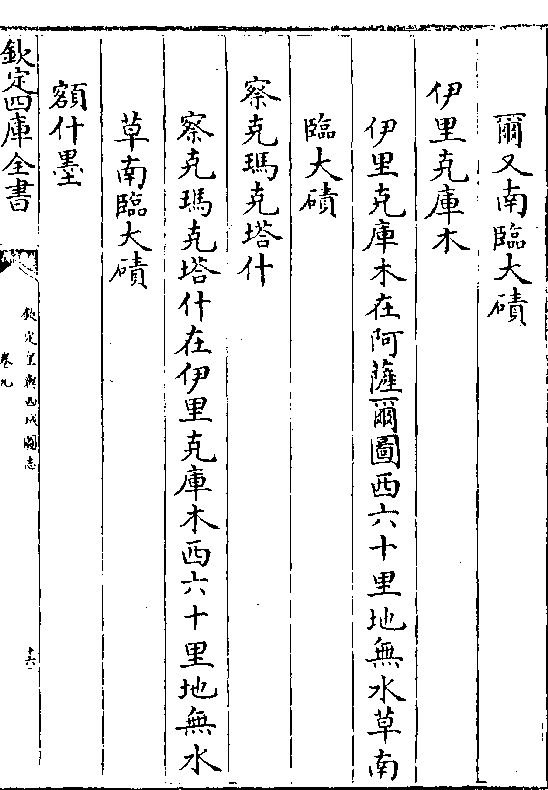 爾又南臨大磧
伊里克庫木
伊里克庫木在阿薩爾圖西六十里地無水草南
臨大磧
察克瑪克塔什
察克瑪克塔什在伊里克庫木西六十里地無水
草南臨大磧
額什墨
欽定四庫全書
欽定皇輿西域圖志
卷九
十六